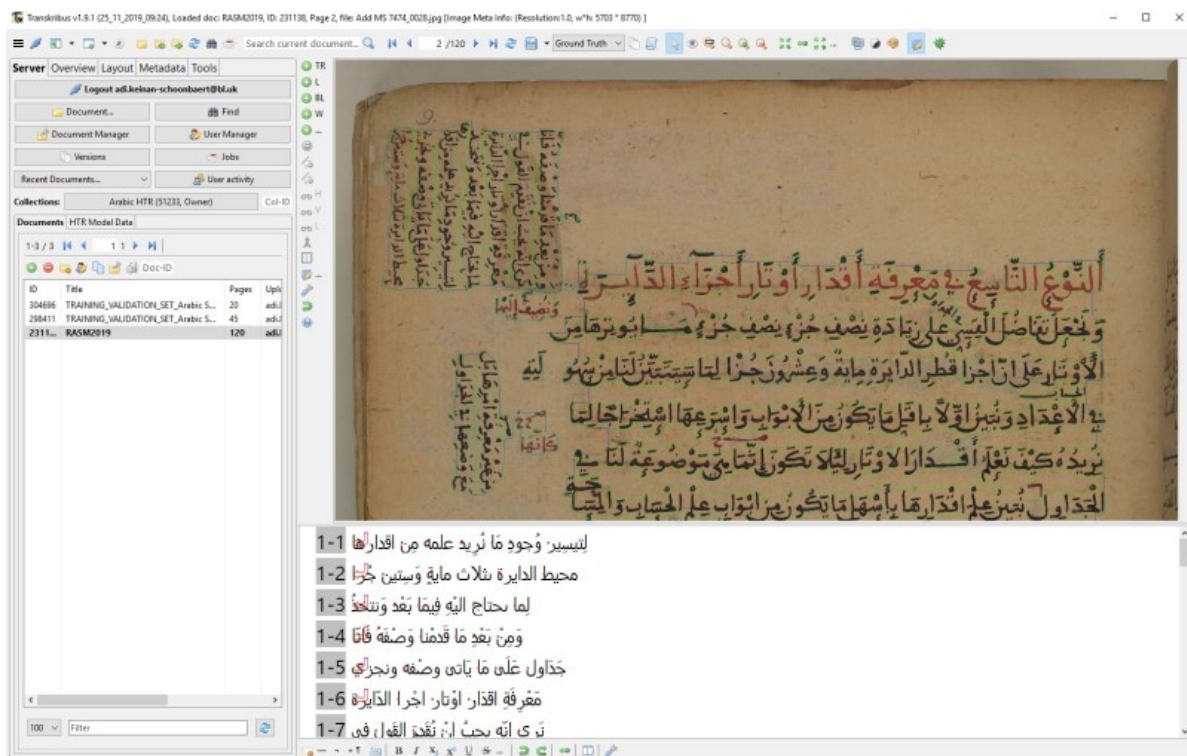 Transkribus v1.9.1 (25_11_2019_09:24), Loaded doc: RASM2019, ID: 231138, Page 2, file: Add MS 7474_0028.jpg [Image Meta Info: (Resolution:1.0, w*h: 5703 * 8770) ]
Search current document...
2 /120
Ground Truth
Server Overview Layout Metadata Tools
Logout adi.keinan-schoonbaert@bl.uk
Document... Find
Document Manager User Manager
Versions Jobs
Recent Documents... User activity
Collections: Arabic HTR (51233, Owner) Col-ID
Documents HTR Model Data
1-3 / 3 1 1
Doc-ID
ID Title Pages Uplo
304696 TRAINING_VALIDATION_SET_Arabic S... 20 adi.l
298411 TRAINING_VALIDATION_SET_Arabic S... 45 adi.l
2311... RASM2019 120 adi.l
100 Filter
TR
L
BL
W
H
V
L
أَلنَّوْعُ التَّاسِعُ فِي مَعْرِفَةِ أَقْدَارِ أَوْتَارِ أَجْزَاءِ الدَّآيِرَةِ
وَنَجْعَل تَفَاضُلَ الْقِسِيّ عَلَى زِيَادَةِ نِصْف جُزْءٍ نِصْف جُزْءٍ مَا يُوتِرهَا مِنَ
الْأَوْتَارِ عَلَى انّ اجْزَا قُطْرِ الدَّايِرَةِ مِايَةٌ وَعِشْرُونَ جُزْا لِمَا سَيَتَبَيَّنُ لَنَا مِنْ سُهُو لَتِهِ
الحساب
فِي الْاعْدَادِ وَنُبَيّنُ اوّلًا بِاقَلّ مَا يَكُونُ مِنَ الْابْوَابِ وَاسْرَعِهَا اسْتِخْرَاجًا لِمَا
نُرِيدُهُ كَيْفَ نَعْلَم أَقْدَارَ الاوْتَارِ لِيَلَّا تَكُونَ إِنَّمَا هِيَ مَوْضُوعَةٌ لَنَا فِي
الْجَدَاوِل نُبَيّن عِلْمَ اقْدَارِهَا بِأَسْهَل مَا يَكُونُ مِن ابْوَابِ عِلْمِ الْحِسَابِ وَالْمِسَا حَةِ
1-1 لِتيسِير وُجودِ مَا نُريد علمه مِن اقدارها
1-2 محيط الدايرة بثلاث مايةٍ وَستين جُزا
1-3 لِما يحتاج اليْهِ فِيمَا بَعْد وَنتخذُ
1-4 وَمِنْ بَعْدِ مَا قَدمْنا وَصْفَهُ فَانَا
1-5 جَدَاول عَلَى مَا يَاتى وصْفه ونجزي
1-6 مَعْرفَةِ اقدَار اوْتار اجْرا الدّايرة
1-7 نَرى انّه يجبُ انْ نُقَدمَ القَول فى
B I